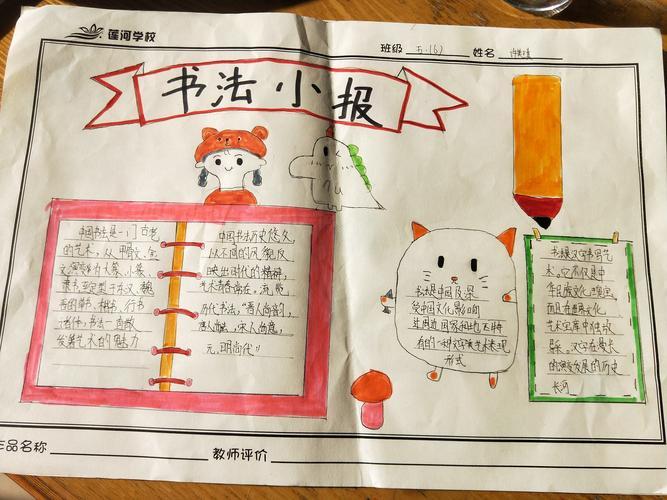 莲河学校
班级 五.(6) 姓名
书法小报
中国书法是一门古老
的艺术,从甲骨文、金
文演变为大篆、小篆、
隶书至定型于东汉、魏
晋的草书、楷书、行书
诸体,书法一直散
发着艺术的魅力
中国书法历史悠久,
以不同的风貌反
映出时代的精神,
艺术青春常在。浏览
历代书法,“晋人尚韵,
唐人尚法,宋人尚意,
元、明尚态”
书法是中国及深
受中国文化影响
过的周边国家和地区特
有的一种文字美艺术表现
形式
书法是汉字书写艺
术。它不仅是中
华民族文化瑰宝,
而且在世界文化
艺术宝库中独放
异采。汉字在漫长
的演变发展的历史
长河
作品名称
教师评价